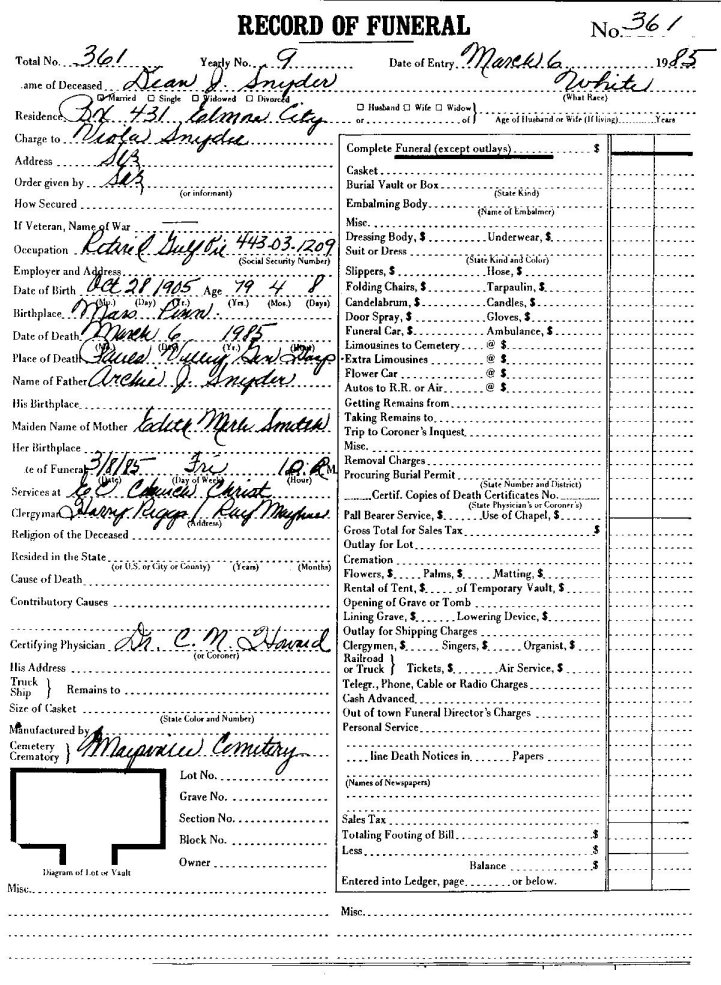 RECORD OF FUNERAL No. 361
Total No. 361 Yearly No. 9 Date of Entry March 6 1985
ame of Deceased Dean J. Snyder White
Married Single Widowed Divorced (What Race)
Residence Bx 431 City
Husband Wife Widow
or of Age of Husband or Wife (If living) Years
Charge to Viola Snyder
Address
Order given by
(or informant)
How Secured
If Veteran, Name of War
Occupation Retired Gulf 443-03-1209
(Social Security Number)
Employer and Address
Date of Birth Oct 28 1905 Age 79 4 8
(Mo.) (Day) (Yr.) (Yrs.) (Mos.) (Days)
Birthplace
Date of Death March 6 1985
(Mo.) (Day) (Yr.) (Hour)
Place of Death Valley Gen Hosp
Name of Father Archie J. Snyder
His Birthplace
Maiden Name of Mother Edith Merle Smith
Her Birthplace
te of Funeral 3/8/85 Fri 10 A M
(Date) (Day of Week) (Hour)
Services at Church Christ
Clergyman Harry Riggs / Ray
(Address)
Religion of the Deceased
Resided in the State
(or U.S. or City or County) (Years) (Months)
Cause of Death
Contributory Causes
Certifying Physician Dr. C. N. Howard
(or Coroner)
His Address
Truck
Ship Remains to
Size of Casket
(State Color and Number)
Manufactured by
Cemetery
Crematory Cemetery
Lot No.
Grave No.
Section No.
Block No.
Owner
Diagram of Lot or Vault
Misc.
Complete Funeral (except outlays) $
Casket
Burial Vault or Box
(State Kind)
Embalming Body
(Name of Embalmer)
Misc.
Dressing Body, $ Underwear, $
Suit or Dress
(State Kind and Color)
Slippers, $ Hose, $
Folding Chairs, $ Tarpaulin, $
Candelabrum, $ Candles, $
Door Spray, $ Gloves, $
Funeral Car, $ Ambulance, $
Limousines to Cemetery @ $
Extra Limousines @ $
Flower Car @ $
Autos to R.R. or Air @ $
Getting Remains from
Taking Remains to
Trip to Coroner's Inquest
Misc.
Removal Charges
Procuring Burial Permit
(State Number and District)
Certif. Copies of Death Certificates No.
(State Physician's or Coroner's)
Pall Bearer Service, $ Use of Chapel, $
Gross Total for Sales Tax $
Outlay for Lot
Cremation
Flowers, $ Palms, $ Matting, $
Rental of Tent, $ of Temporary Vault, $
Opening of Grave or Tomb
Lining Grave, $ Lowering Device, $
Outlay for Shipping Charges
Clergymen, $ Singers, $ Organist, $
Railroad
or Truck Tickets, $ Air Service, $
Telegr., Phone, Cable or Radio Charges
Cash Advanced
Out of town Funeral Director's Charges
Personal Service
line Death Notices in Papers
(Names of Newspapers)
Sales Tax
Totaling Footing of Bill $
Less $
Balance $
Entered into Ledger, page or below.
Misc.